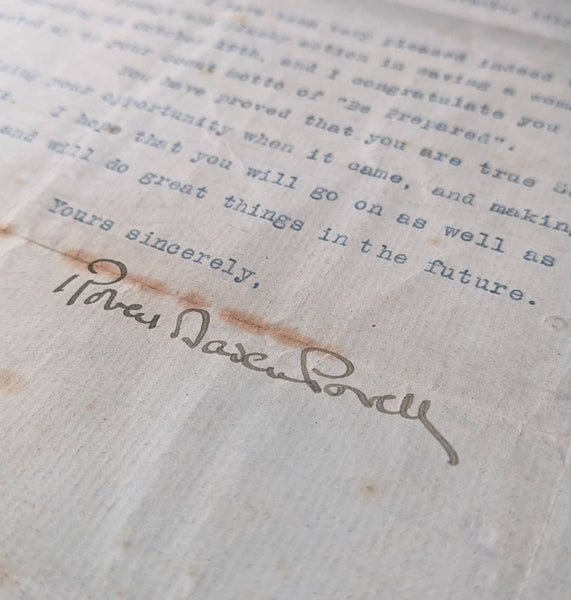 been very pleased indeed
action in saving a
on October 19th, and I congratulate you
up to your Scout motto of "Be Prepared".
You have proved that you are true
your opportunity when it came, and making
I hope that you will go on as well as
and will do great things in the future.
Yours sincerely,
Robert Baden Powell